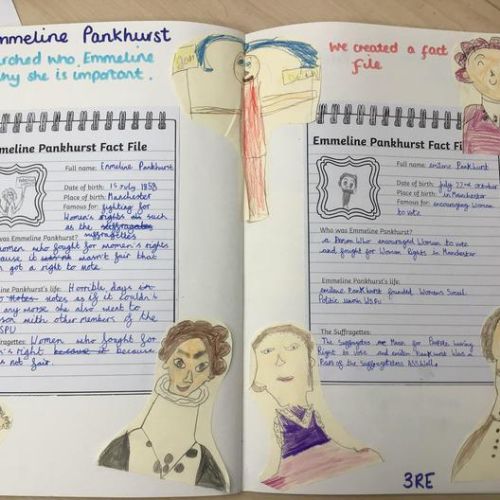 mmeline Pankhurst
arched who Emmeline
hy she is important.
meline Pankhurst Fact File
Full name: Emmeline Pankhurst
Date of birth: 15 July 1858
Place of birth: Manchester
Famous for: fighting for
Women's rights such
as the
suffragettes
was Emmeline Pankhurst?
women who fought for women's rights
cause it wasn't fair that
n got a right to vote
meline Pankhurst's life: Horrible days in
votes as if it couldn't
any worse she also went to
ison with other members of the
SPU
ragettes: Women who fought for
en's right because
s not fair.
We created a fact
file
Emmeline Pankhurst Fact File
Full name: Pankhurst
Date of birth: July 22nd october
Place of birth: in Manchester
Famous for: encouraging women
to vote
Who was Emmeline Pankhurst?
a Person Who encouraged Woman to vote
and fought for Woman Rights in Manchester
Emmeline Pankhurst's life:
Pankhurst founded Woman's Social
WSPU
The Suffragettes:
The Suffragettes Mean for People having
Right to vote and Pankhurst Was a
Part of the
3RE